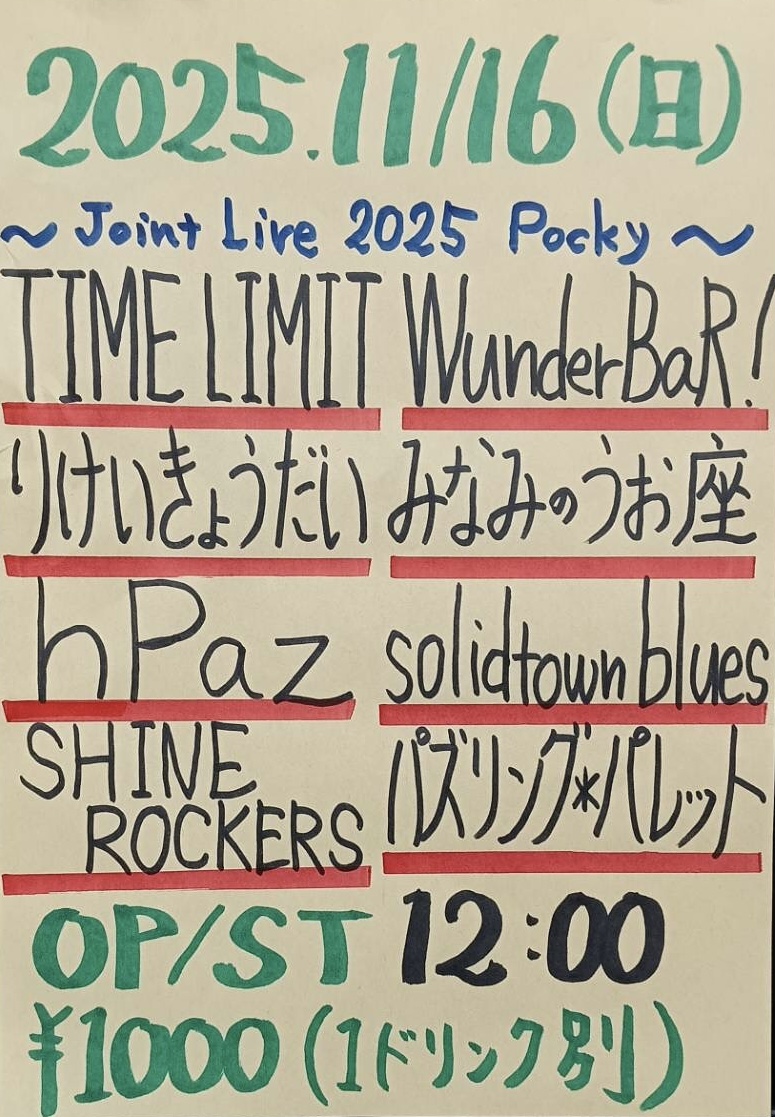 2025.11/16(日)
～ Joint Live 2025 Pocky ～
TIME LIMIT WunderBaR!
りけいきょうだい みなみのうお座
hPaz solidtown blues
SHINE
ROCKERS パズリング*パレット
OP/ST 12:00
¥1000(1ドリンク別)